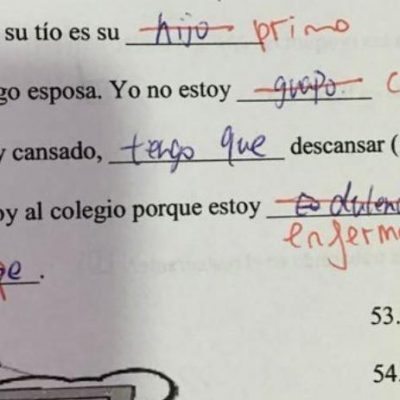 su tío es su hijo primo
go esposa. Yo no estoy guapo. c
y cansado, tengo que descansar (
oy al colegio porque estoy
enferm
e.
53.
54.